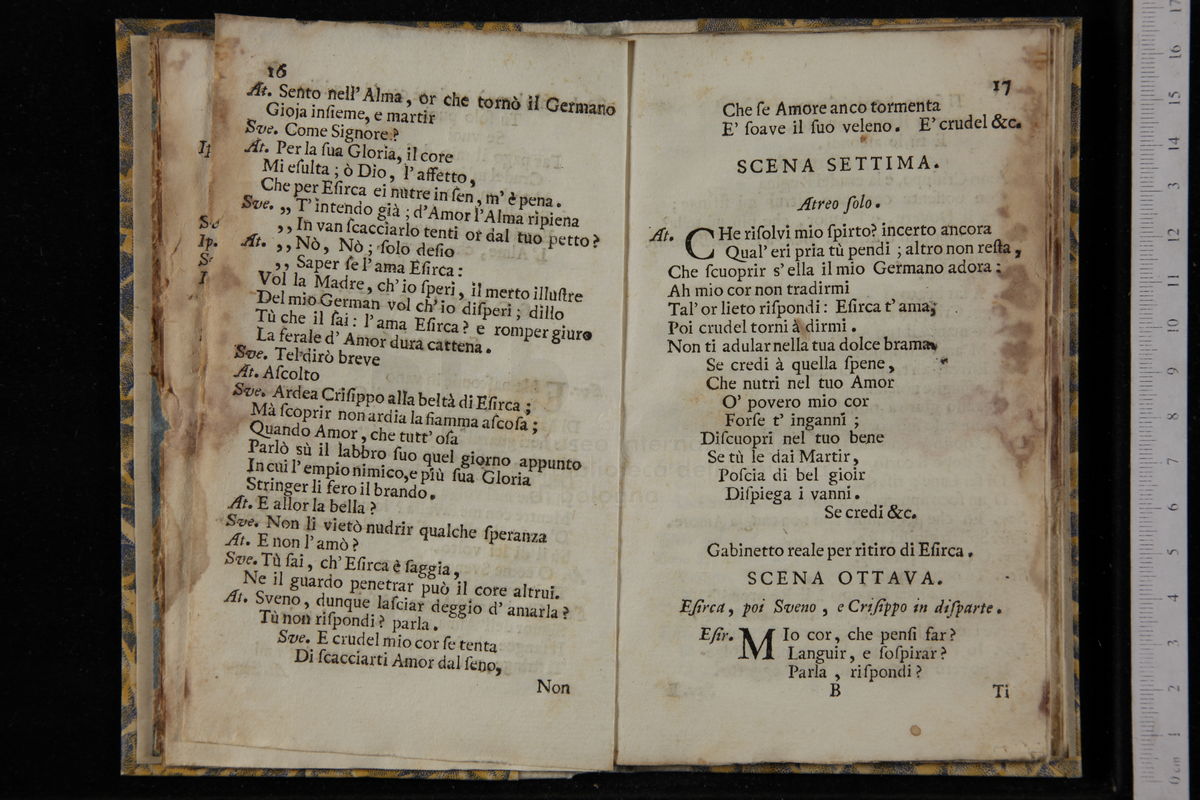 16
At. Sento nell' Alma, or che tornò il Germano
Gioja inſieme, e martir
Sve. Come Signore?
At. Per la ſua Gloria, il core
Mi eſulta; ò Dio, l' affetto,
Che per Eſirca ei nutre in ſen, m' è pena.
Sve. ,, T' intendo già; d'Amor l'Alma ripiena
,, In van ſcacciarlo tenti or dal tuo petto?
At. ,, Nò, Nò; ſolo deſio
,, Saper ſe l'ama Eſirca:
Vol la Madre, ch' io ſperi, il merto illuſtre
Del mio German vol ch' io diſperi; dillo
Tù che il ſai: l' ama Eſirca? e romper giuro
La ferale d' Amor dura cattena.
Sve. Tel dirò breve
At. Aſcolto
Sve. Ardea Criſippo alla beltà di Eſirca;
Mà ſcoprir non ardia la fiamma aſcoſa;
Quando Amor, che tutt' oſa
Parlò sù il labbro ſuo quel giorno appunto
In cui l' empio nimico, e più ſua Gloria
Stringer li fero il brando.
At. E allor la bella?
Sve. Non li vietò nudrir qualche ſperanza
At. E non l' amò?
Sve. Tù ſai, ch' Eſirca è ſaggia,
Ne il guardo penetrar può il core altrui.
At. Sveno, dunque laſciar deggio d' amarla?
Tù non riſpondi? parla.
Sve. E crudel mio cor ſe tenta
Di ſcacciarti Amor dal ſeno,
Non
17
Che ſe Amore anco tormenta
E' ſoave il ſuo veleno. E' crudel &c.
SCENA SETTIMA.
Atreo ſolo.
At. CHe riſolvi mio ſpirto? incerto ancora
Qual' eri pria tù pendi; altro non reſta,
Che ſcuoprir s' ella il mio Germano adora:
Ah mio cor non tradirmi
Tal' or lieto riſpondi: Eſirca t' ama;
Poi crudel torni à dirmi.
Non ti adular nella tua dolce brama
Se credi à quella ſpene,
Che nutri nel tuo Amor
O' povero mio cor
Forſe t' inganni;
Diſcuopri nel tuo bene
Se tù le dai Martir,
Poſcia di bel gioir
Diſpiega i vanni.
Se credi &c.
Gabinetto reale per ritiro di Eſirca.
SCENA OTTAVA.
Eſirca, poi Sveno, e Criſippo in diſparte.
Eſir. MIo cor, che penſi far?
Languir, e ſoſpirar?
Parla, riſpondi?
B Ti